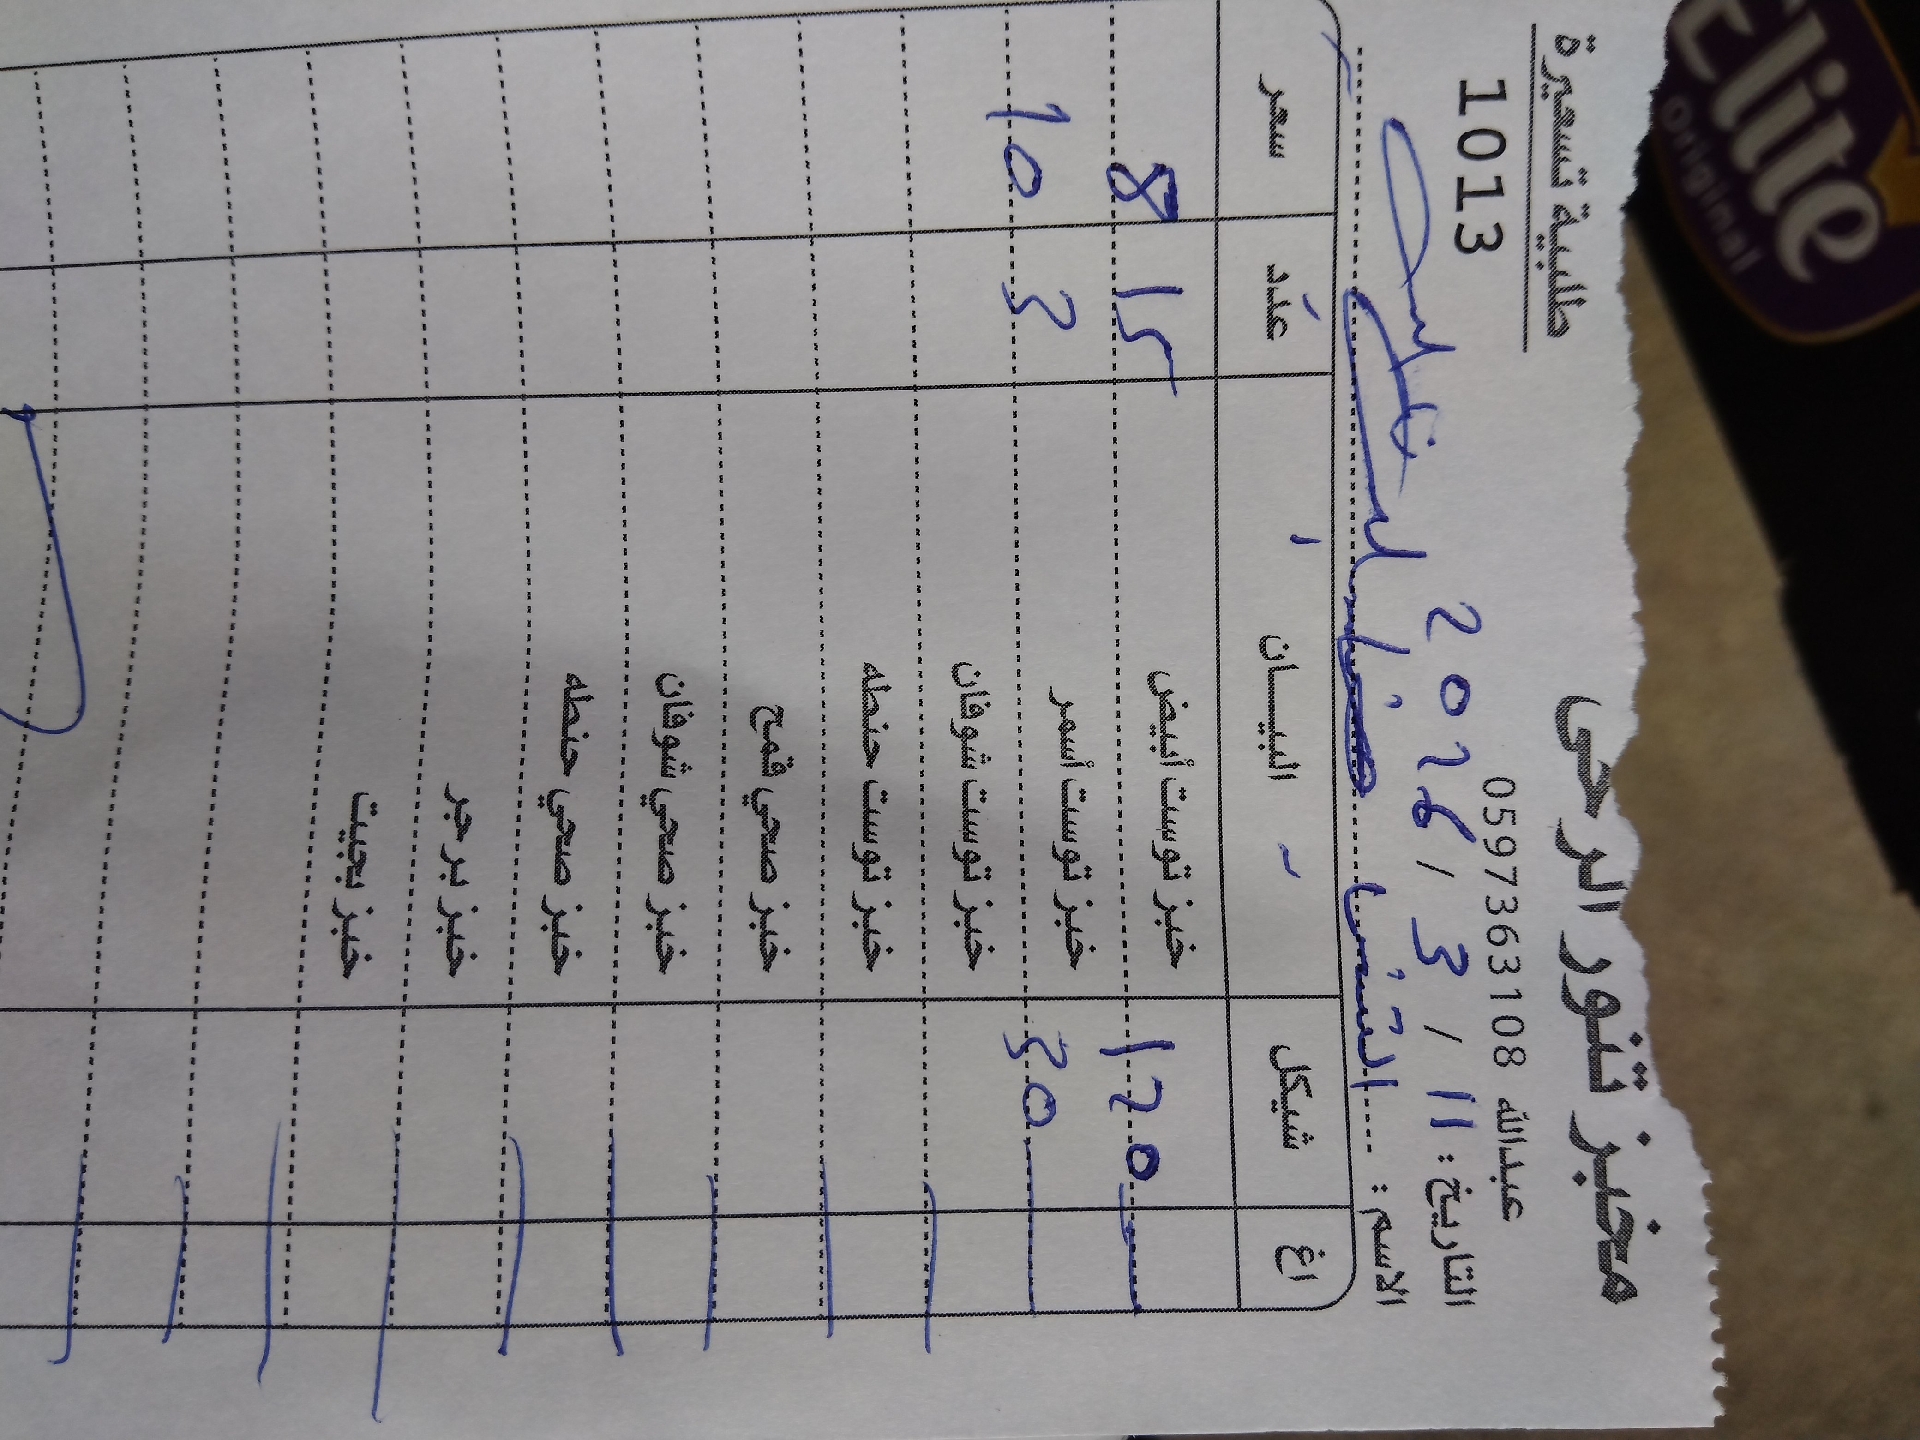 مخبز تنور الرحى
طلبية تسعيرة
عبدالله 0597363108
1013
التاريخ : 11 / 3 / 2026
الاسم :
اغ شيكل البيــــان عدد سعر
120 خبز توست أبيض 15 8
30 خبز توست أسمر 3 10
خبز توست شوفان
خبز توست حنطه
خبز صحي قمح
خبز صحي شوفان
خبز صحي حنطه
خبز برجر
خبز بجيت
Elite
Original